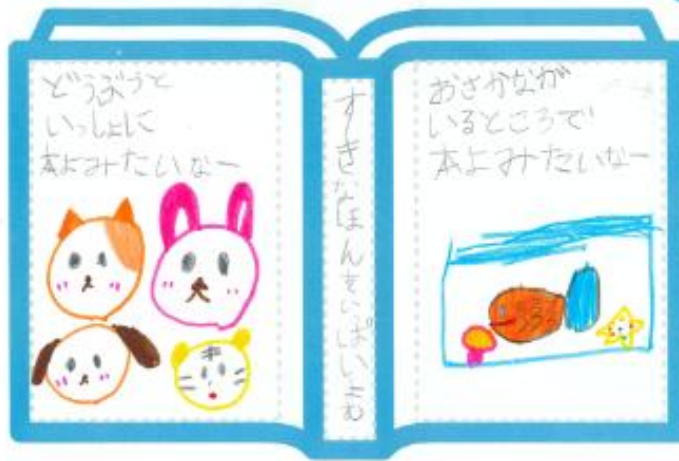 どうぶつと
いっしょに
本よみたいなー
すきなほんをいっぱいよむ
おさかなが
いるところで
本よみたいなー